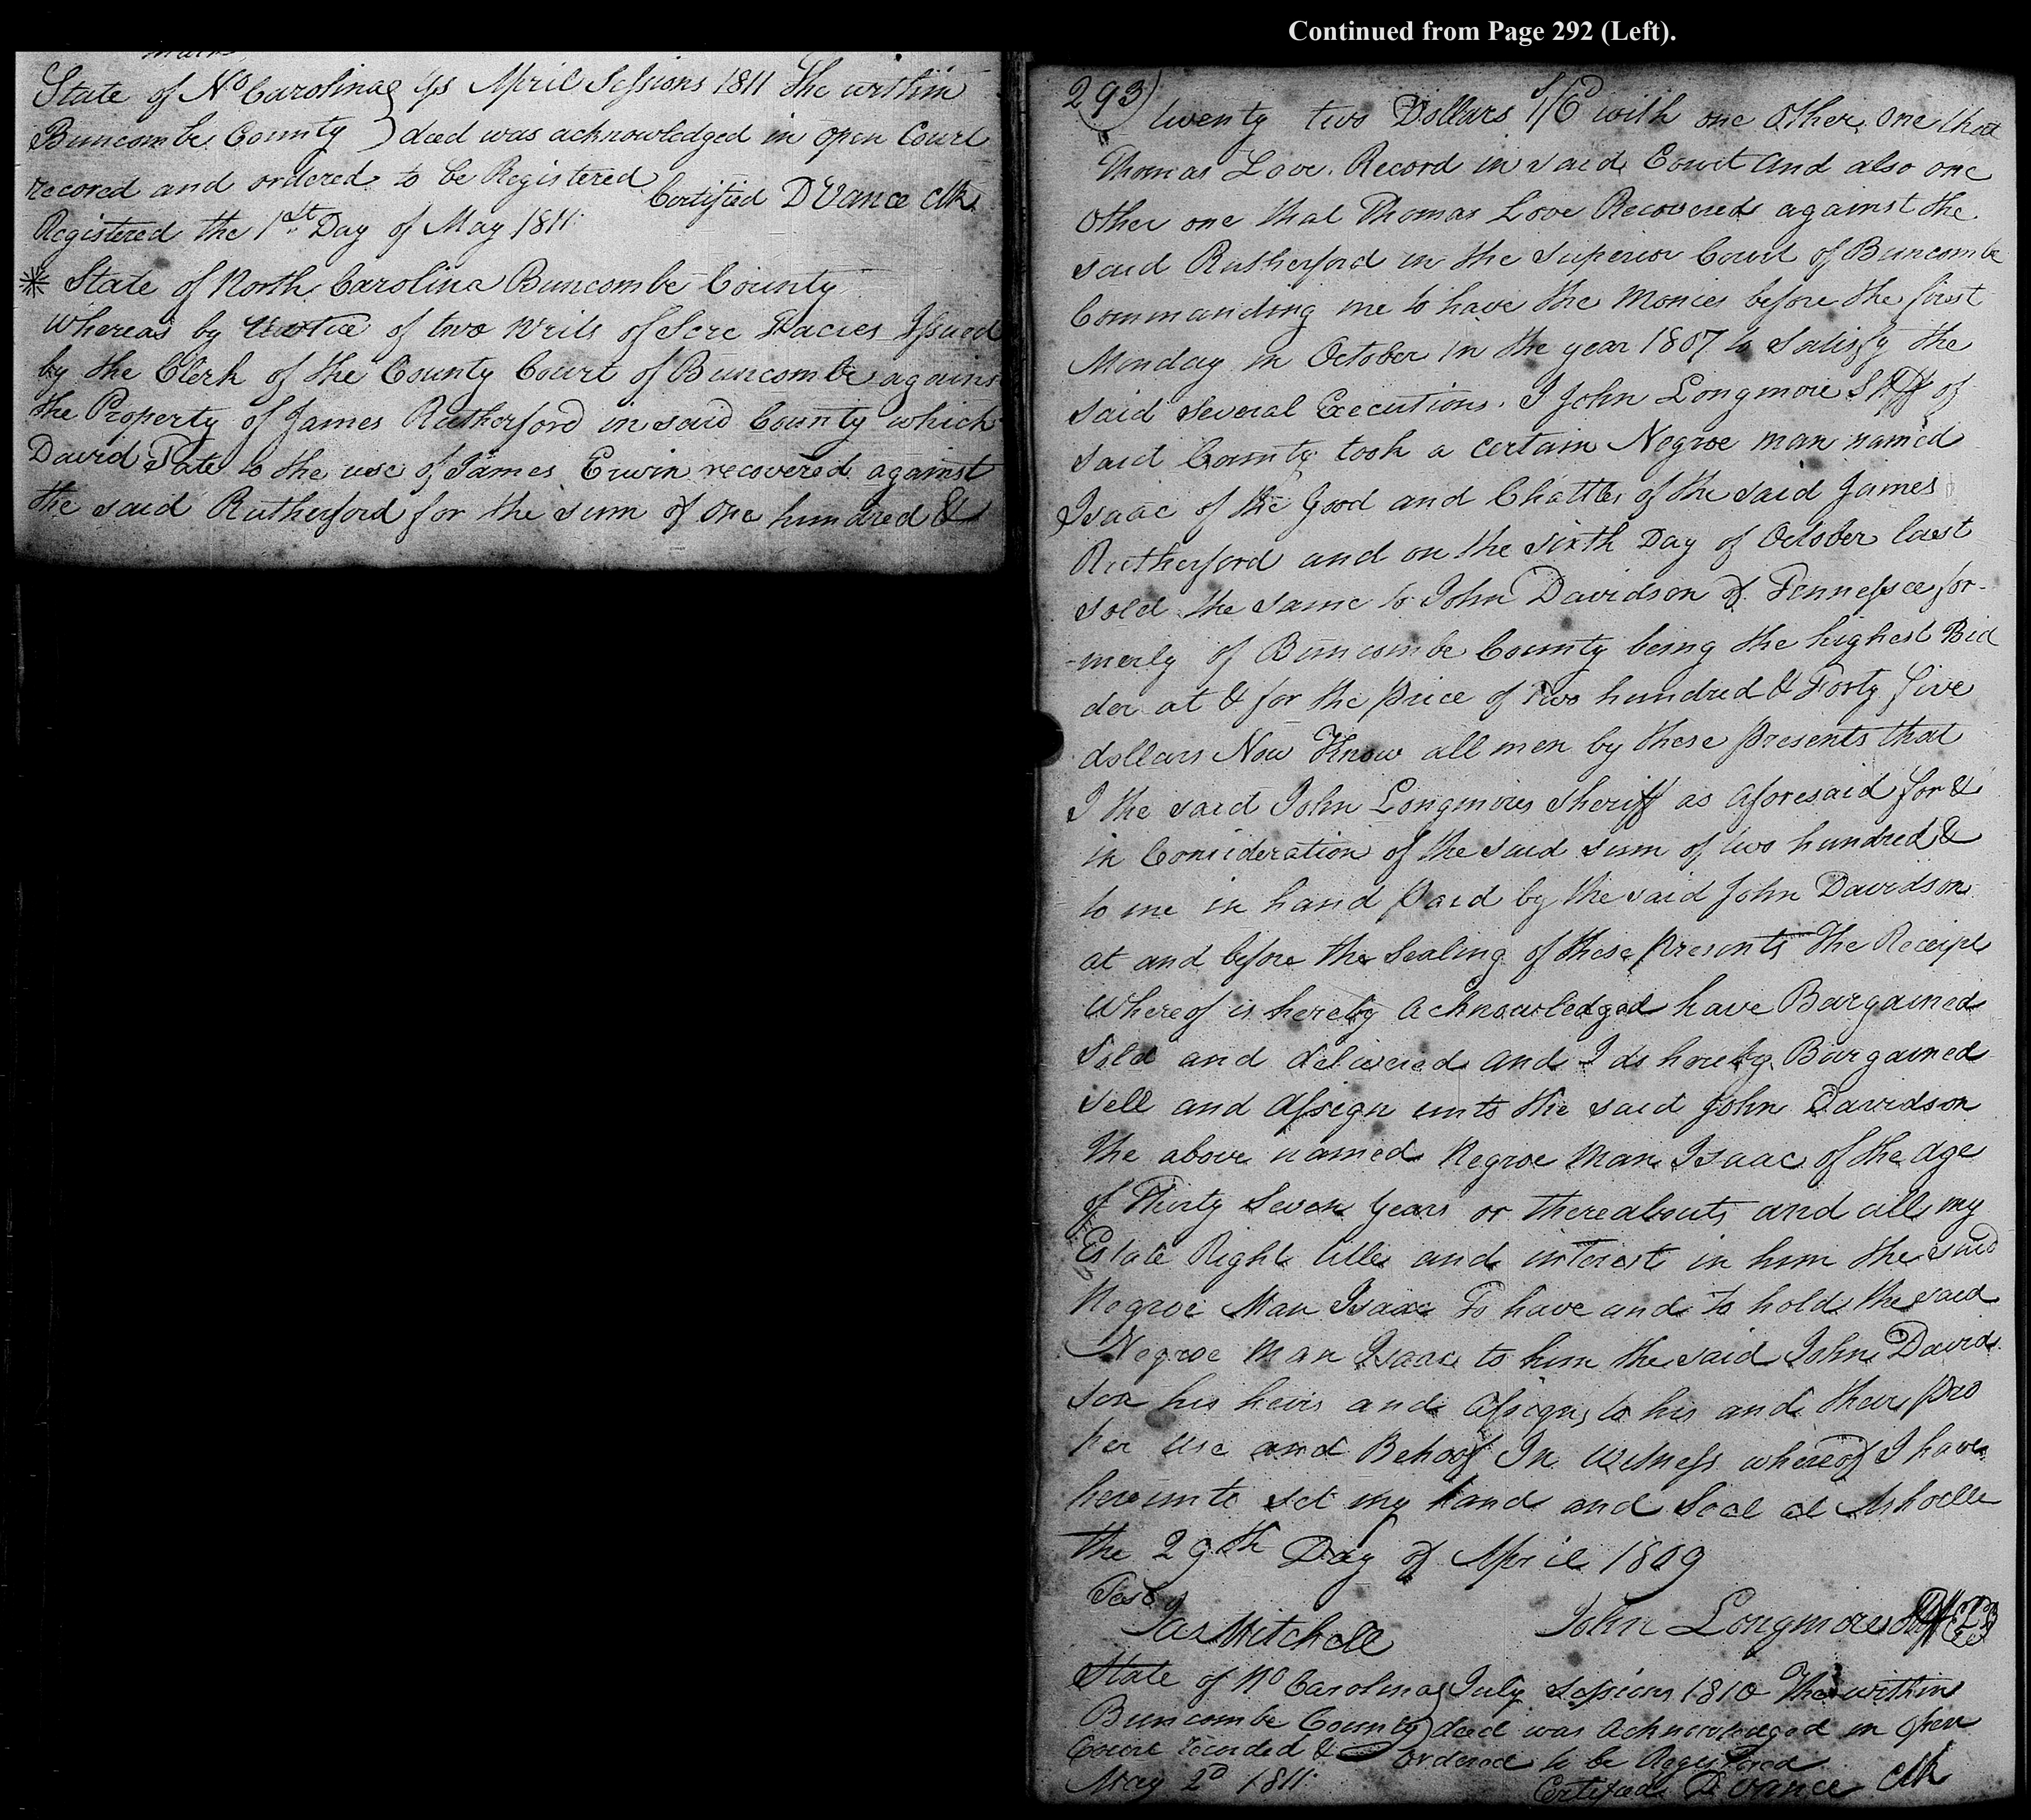 Continued from Page 292 (Left).
State of No Carolina April Sessions 1811 The within
Buncombe County ) deed was acknowledged in open Court
recored and ordered to be Registered
Certified D Vance clk
Registered the 1st Day of May 1811
* State of North Carolina Buncombe County
Whereas by of two Writs of Scre Facies Issued
by the Clerk of the County Court of Buncombe against
the Property of James Rutherford in said County which
David Tate to the use of James Erwin recovered against
the said Rutherford for the sum of one hundred &
293)
twenty two Dollars with one other one that
Thomas Love Record in said Court and also one
Other one that Thomas Love Recovered against the
said Rutherford in the Superior Court of Buncombe
Commanding me to have the Monies before the first
Monday in October in the year 1807 to Satisfy the
said several Executions. I John Longmore Shff of
said County took a certain Negroe man named
Isaac of the Good and Chattles of the said James
Rutherford and on the sixth Day of October last
sold the same to John Davidson of Tennessee for-
-merly of Buncombe County being the highest Bid
der at & for the price of Two hundred & Forty five
dollars Now Know all men by these presents that
I the said John Longmires Sheriff as aforesaid for &
in Consideration of the said sum of two hundred &
to me in hand paid by the said John Davidson
at and before the Sealing of these presents the Receipt
Whereof is hereby acknowledged have Bargained
Sold and delivered and I do hereby Bargained
sell and assign unto the said John Davidson
the above named Negroe Man Isaac of the age
of Thirty Seven years or thereabouts and all my
Estate Right title and interest in him the said
Negroe Man Isaac To have and to hold the said
Negroe Man Isaac to him the said John David
son his heirs and assigns to his and their pro
per use and Behoof In witness whereof I have
hereunto set my hand and Seal at
the 29th Day of April 1809
Test
Jas Mitchell
John Longmires Shff
State of No Carolina July Sessions 1810 The within
Buncombe County ) deed was acknowledged in open
Court recorded & ordered to be Registered
May 2D 1811
Certified D Vance clk